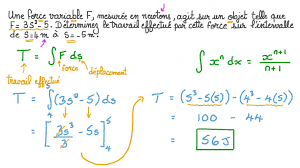 Une force variable F, mesurée en newtons, agit sur un objet telle que
F = 3s² - 5. Déterminez le travail effectué par cette force sur l'intervalle
de s = 4 m à s = 5 m.
T = ∫ F ds
force
déplacement
travail effectué
∫ xⁿ dx = xⁿ⁺¹/(n+1)
T = ∫₄⁵ (3s² - 5) ds
= [3s³/3 - 5s]₄⁵
T = (5³ - 5(5)) - (4³ - 4(5))
= 100 - 44
= 56 J